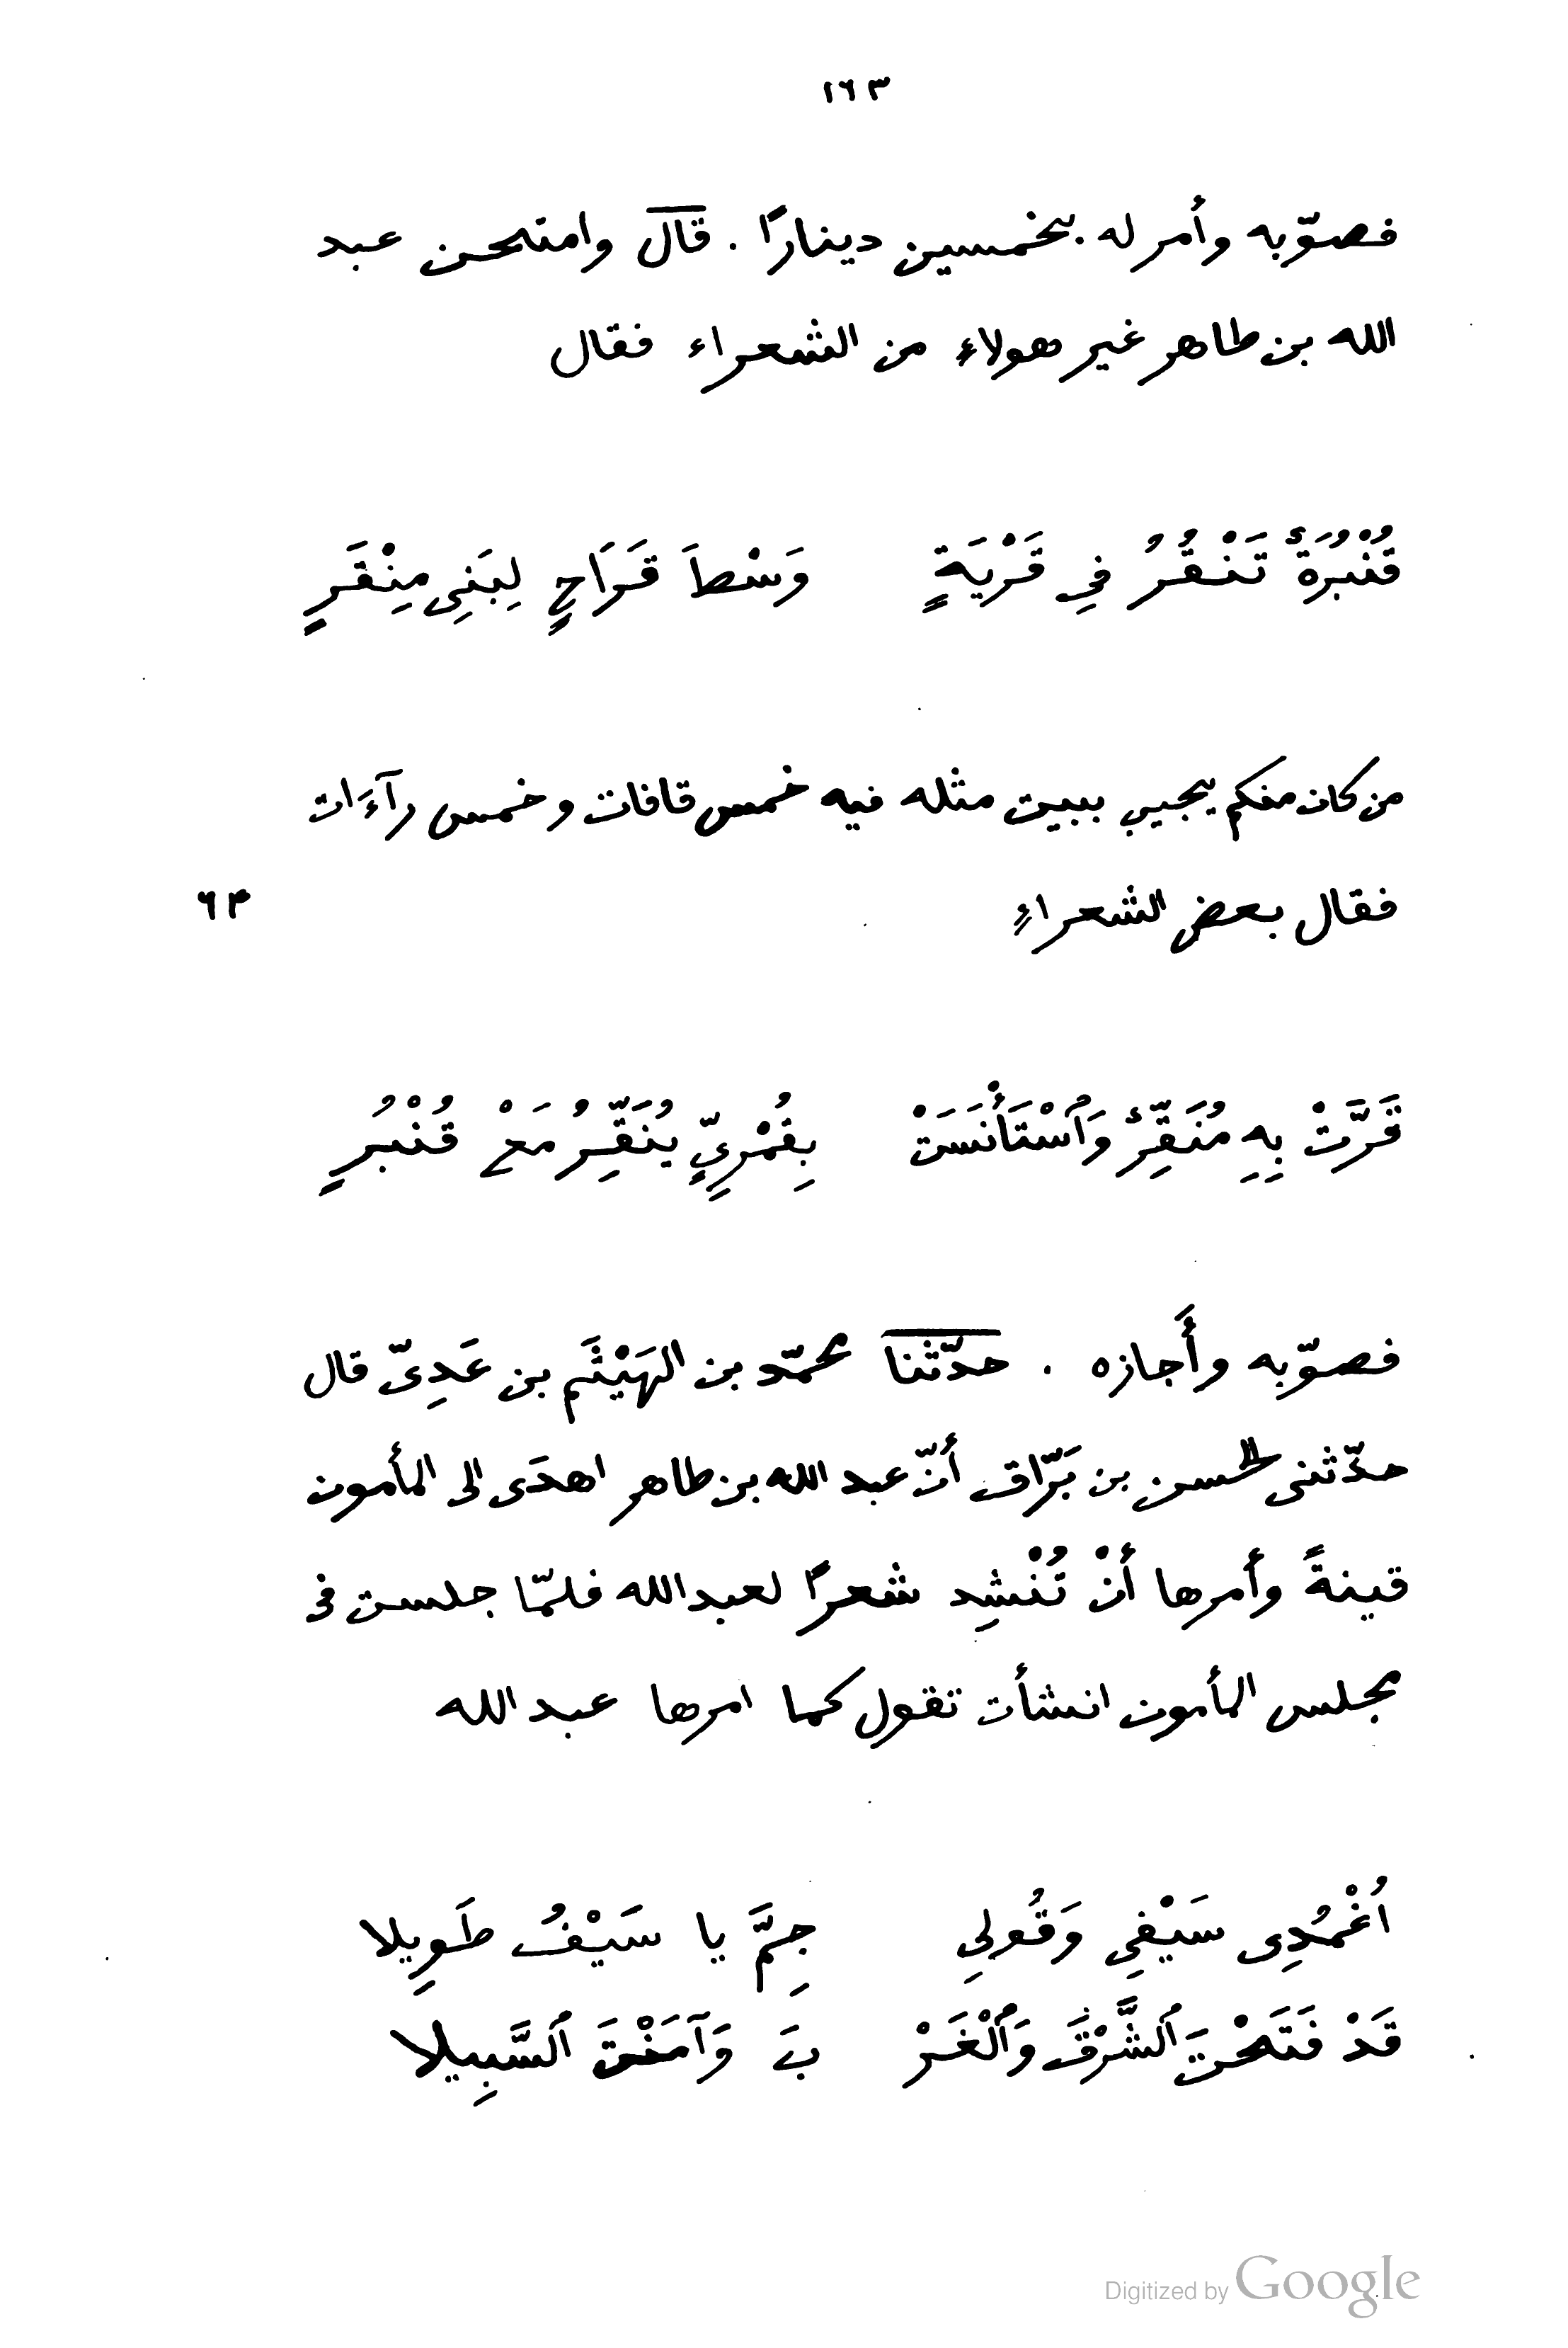 ١٦٣
فصوّبه وأمر له بخمسين دينارًا . قال وامتحن عبد
الله بن طاهر غير هولاء من الشعراء فقال
قُنْبُرَةٌ تَنْقُرُ فِي قَرْيَةٍ وَسْطَ قَرَاحٍ لِبَنِى مِنْقَرٍ
من كان منكم يجيب ببيت مثله فيه خمس قافات وخمس رآءَات
فقال بعض الشعراءِ ٦٣
قَرَّتْ بِهِ مُنَقِّرٌ وَٱسْتَأْنَسَتْ بِقُمْرِيٍّ يُنَقِّرُ مَعْ قُنْبُرٍ
فصوّبه وأَجازه . حدّثنا محمّد بن الهَيْثَم بن عَدِىّ قال
حدّثنى الحسن بن بَرّاق أنّ عبد الله بن طاهر اهدَى الى المأمون
قينةً وأمرها أنْ تُنْشِد شعرًا لعبد الله فلمّا جلست فى
مجلس المأمون انشأت تقول كما امرها عبد الله
اُغْمُدِى سَيْفِي وَقُولِي جِمَّ يا سَيْفُ طَوِيلا
قَدْ فَتَحْتَ ٱلشَّرْقَ وَٱلْغَرْ بَ وَآمَنْتَ ٱلسَّبِيلا
Digitized by Google